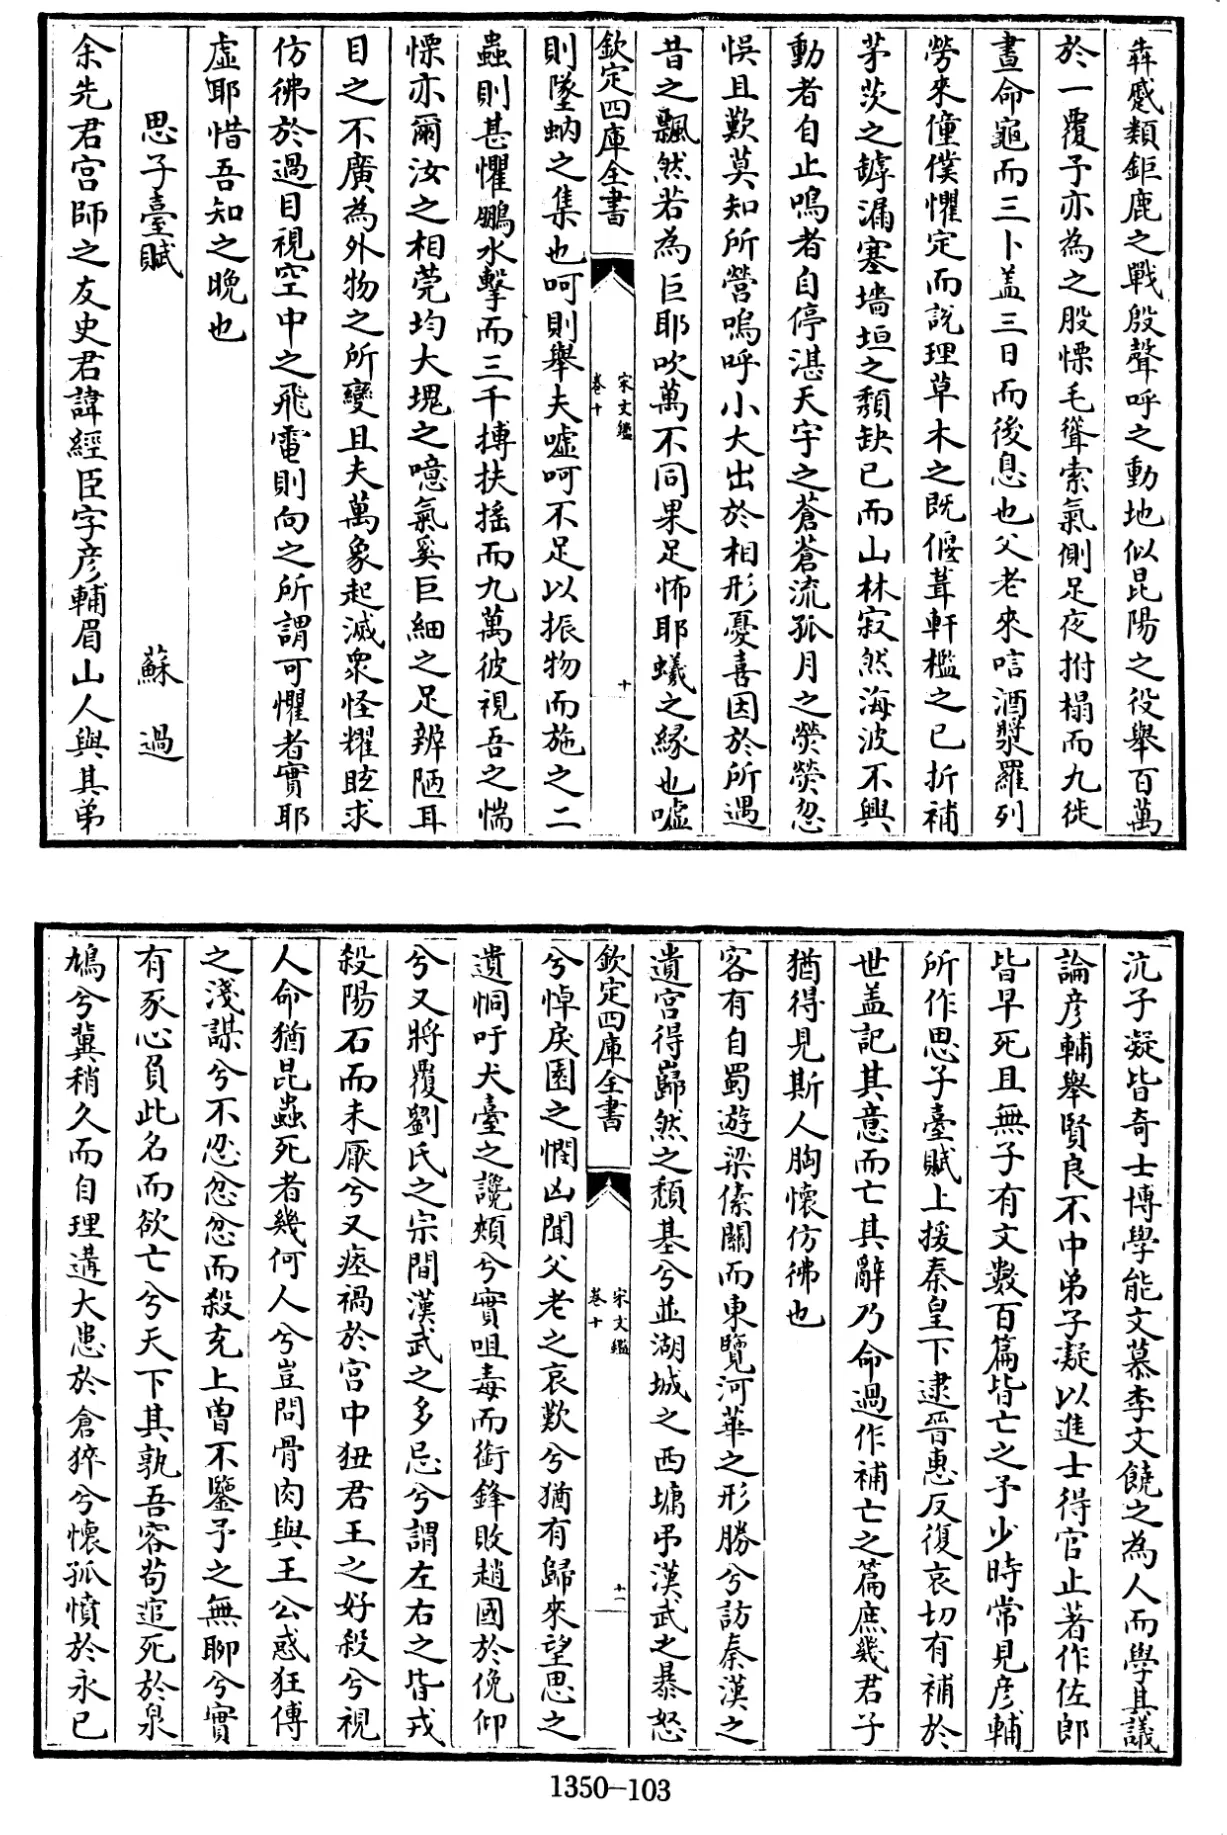 犇蹙類鉅鹿之戰殷聲呼之動地似昆陽之役舉百萬
於一覆予亦為之股慄毛聳索氣側足夜拊榻而九徙
晝命龜而三卜蓋三日而後息也父老來唁酒漿羅列
勞來僮僕懼定而說理草木之既偃葺軒檻之已折補
茅茨之罅漏塞墻垣之頽缺已而山林寂然海波不興
動者自止鳴者自停湛天宇之蒼蒼流孤月之熒熒忽
悞且歎莫知所營嗚呼小大出於相形憂喜因於所遇
昔之飄然若為巨耶吹萬不同果足怖耶蟻之緣也噓
欽定四庫全書
宋文鑑
卷十
十
則墜蚋之集也呵則舉夫噓呵不足以振物而施之二
蟲則甚懼鵬水擊而三千搏扶搖而九萬彼視吾之惴
慄亦爾汝之相莞均大塊之噫氣奚巨細之足辨陋耳
目之不廣為外物之所變且夫萬象起滅衆怪耀眩求
仿彿於過目視空中之飛電則向之所謂可懼者實耶
虛耶惜吾知之晚也
思子臺賦
蘇過
余先君宮師之友史君諱經臣字彦輔眉山人與其弟
沆子凝皆奇士博學能文慕李文饒之為人而學其議
論彦輔舉賢良不中弟子凝以進士得官止著作佐郎
皆早死且無子有文數百篇皆亡之予少時常見彦輔
所作思子臺賦上援秦皇下逮晉惠反復哀切有補於
世蓋記其意而亡其辭乃命過作補亡之篇庶幾君子
猶得見斯人胸懷仿彿也
客有自蜀遊梁傃關而東覽河華之形勝兮訪秦漢之
遺宮得巋然之頽基兮並湖城之西墉弔漢武之暴怒
欽定四庫全書
宋文鑑
卷十
十一
兮悼戾園之憫凶聞父老之哀歎兮猶有歸來望思之
遺恫吁犬臺之讒頰兮實咀毒而銜鋒敗趙國於俛仰
兮又將覆劉氏之宗間漢武之多忌兮謂左右之皆戎
殺陽石而未厭兮又瘞禍於宮中狃君王之好殺兮視
人命猶昆蟲死者幾何人兮豈問骨肉與王公惑狂傅
之淺謀兮不忍忿忿而殺充上曾不鑒予之無聊兮實
有豕心負此名而欲亡兮天下其孰吾容苟逭死於泉
鳩兮冀稍久而自理遘大患於倉猝兮懷孤憤於永已
1350-103